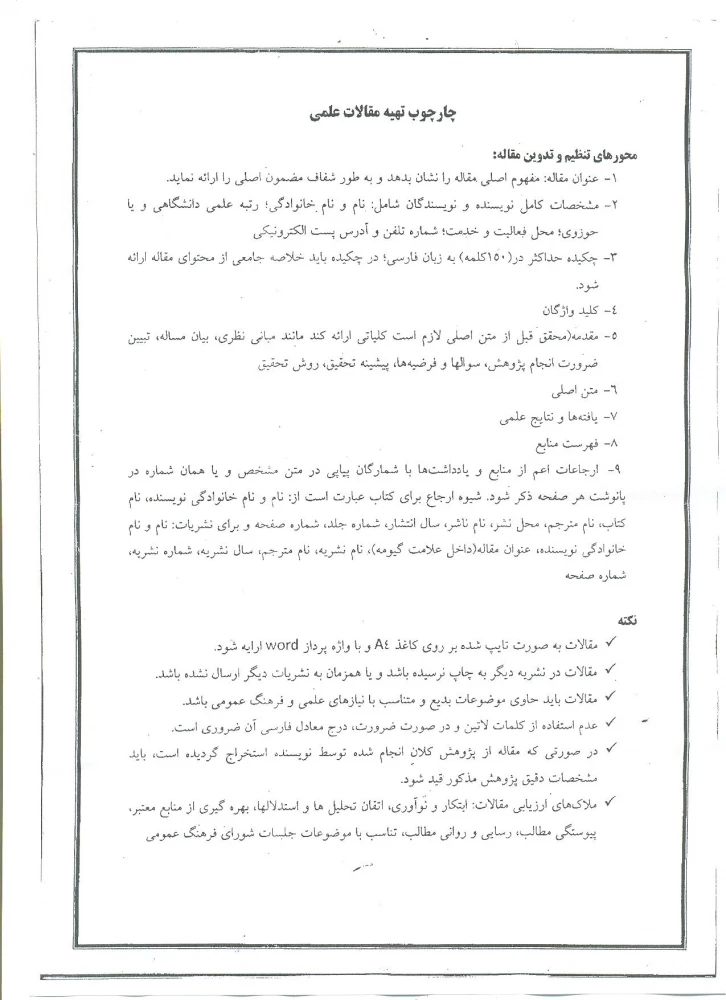 چارچوب تهیه مقالات علمی
محورهای تنظیم و تدوین مقاله:
۱- عنوان مقاله: مفهوم اصلی مقاله را نشان بدهد و به طور شفاف مضمون اصلی را ارائه نماید.
۲- مشخصات کامل نویسنده و نویسندگان شامل: نام و نام خانوادگی؛ رتبه علمی دانشگاهی و یا
حوزوی؛ محل فعالیت و خدمت؛ شماره تلفن و آدرس پست الکترونیکی
۳- چکیده حداکثر در(۱۵۰کلمه) به زبان فارسی؛ در چکیده باید خلاصه جامعی از محتوای مقاله ارائه
شود.
٤- کلید واژگان
۵- مقدمه(محقق قبل از متن اصلی لازم است کلیاتی ارائه کند مانند مبانی نظری، بیان مساله، تبیین
ضرورت انجام پژوهش، سوالها و فرضیه‌ها، پیشینه تحقیق، روش تحقیق
۶- متن اصلی
۷- یافته‌ها و نتایج علمی
۸- فهرست منابع
۹- ارجاعات اعم از منابع و یادداشت‌ها با شمارگان پیاپی در متن مشخص و با همان شماره در
پانوشت هر صفحه ذکر شود. شیوه ارجاع برای کتاب عبارت است از: نام و نام خانوادگی نویسنده، نام
کتاب، نام مترجم، محل نشر، نام ناشر، سال انتشار، شماره جلد، شماره صفحه و برای نشریات: نام و نام
خانوادگی نویسنده، عنوان مقاله(داخل علامت گیومه)، نام نشریه، نام مترجم، سال نشریه، شماره نشریه،
شماره صفحه
نکته
✓ مقالات به صورت تایپ شده بر روی کاغذ A٤ و با واژه پرداز word ارایه شود.
✓ مقالات در نشریه دیگر به چاپ نرسیده باشد و یا همزمان به نشریات دیگر ارسال نشده باشد.
✓ مقالات باید حاوی موضوعات بدیع و متناسب با نیازهای علمی و فرهنگ عمومی باشد.
✓ عدم استفاده از کلمات لاتین و در صورت ضرورت، درج معادل فارسی آن ضروری است.
✓ در صورتی که مقاله از پژوهش کلان انجام شده توسط نویسنده استخراج گردیده است، باید
مشخصات دقیق پژوهش مذکور قید شود.
✓ ملاک‌های ارزیابی مقالات: ابتکار و نوآوری، اتقان تحلیل ها و استدلالها، بهره گیری از منابع معتبر،
پیوستگی مطالب، رسایی و روانی مطالب، تناسب با موضوعات جلسات شورای فرهنگ عمومی